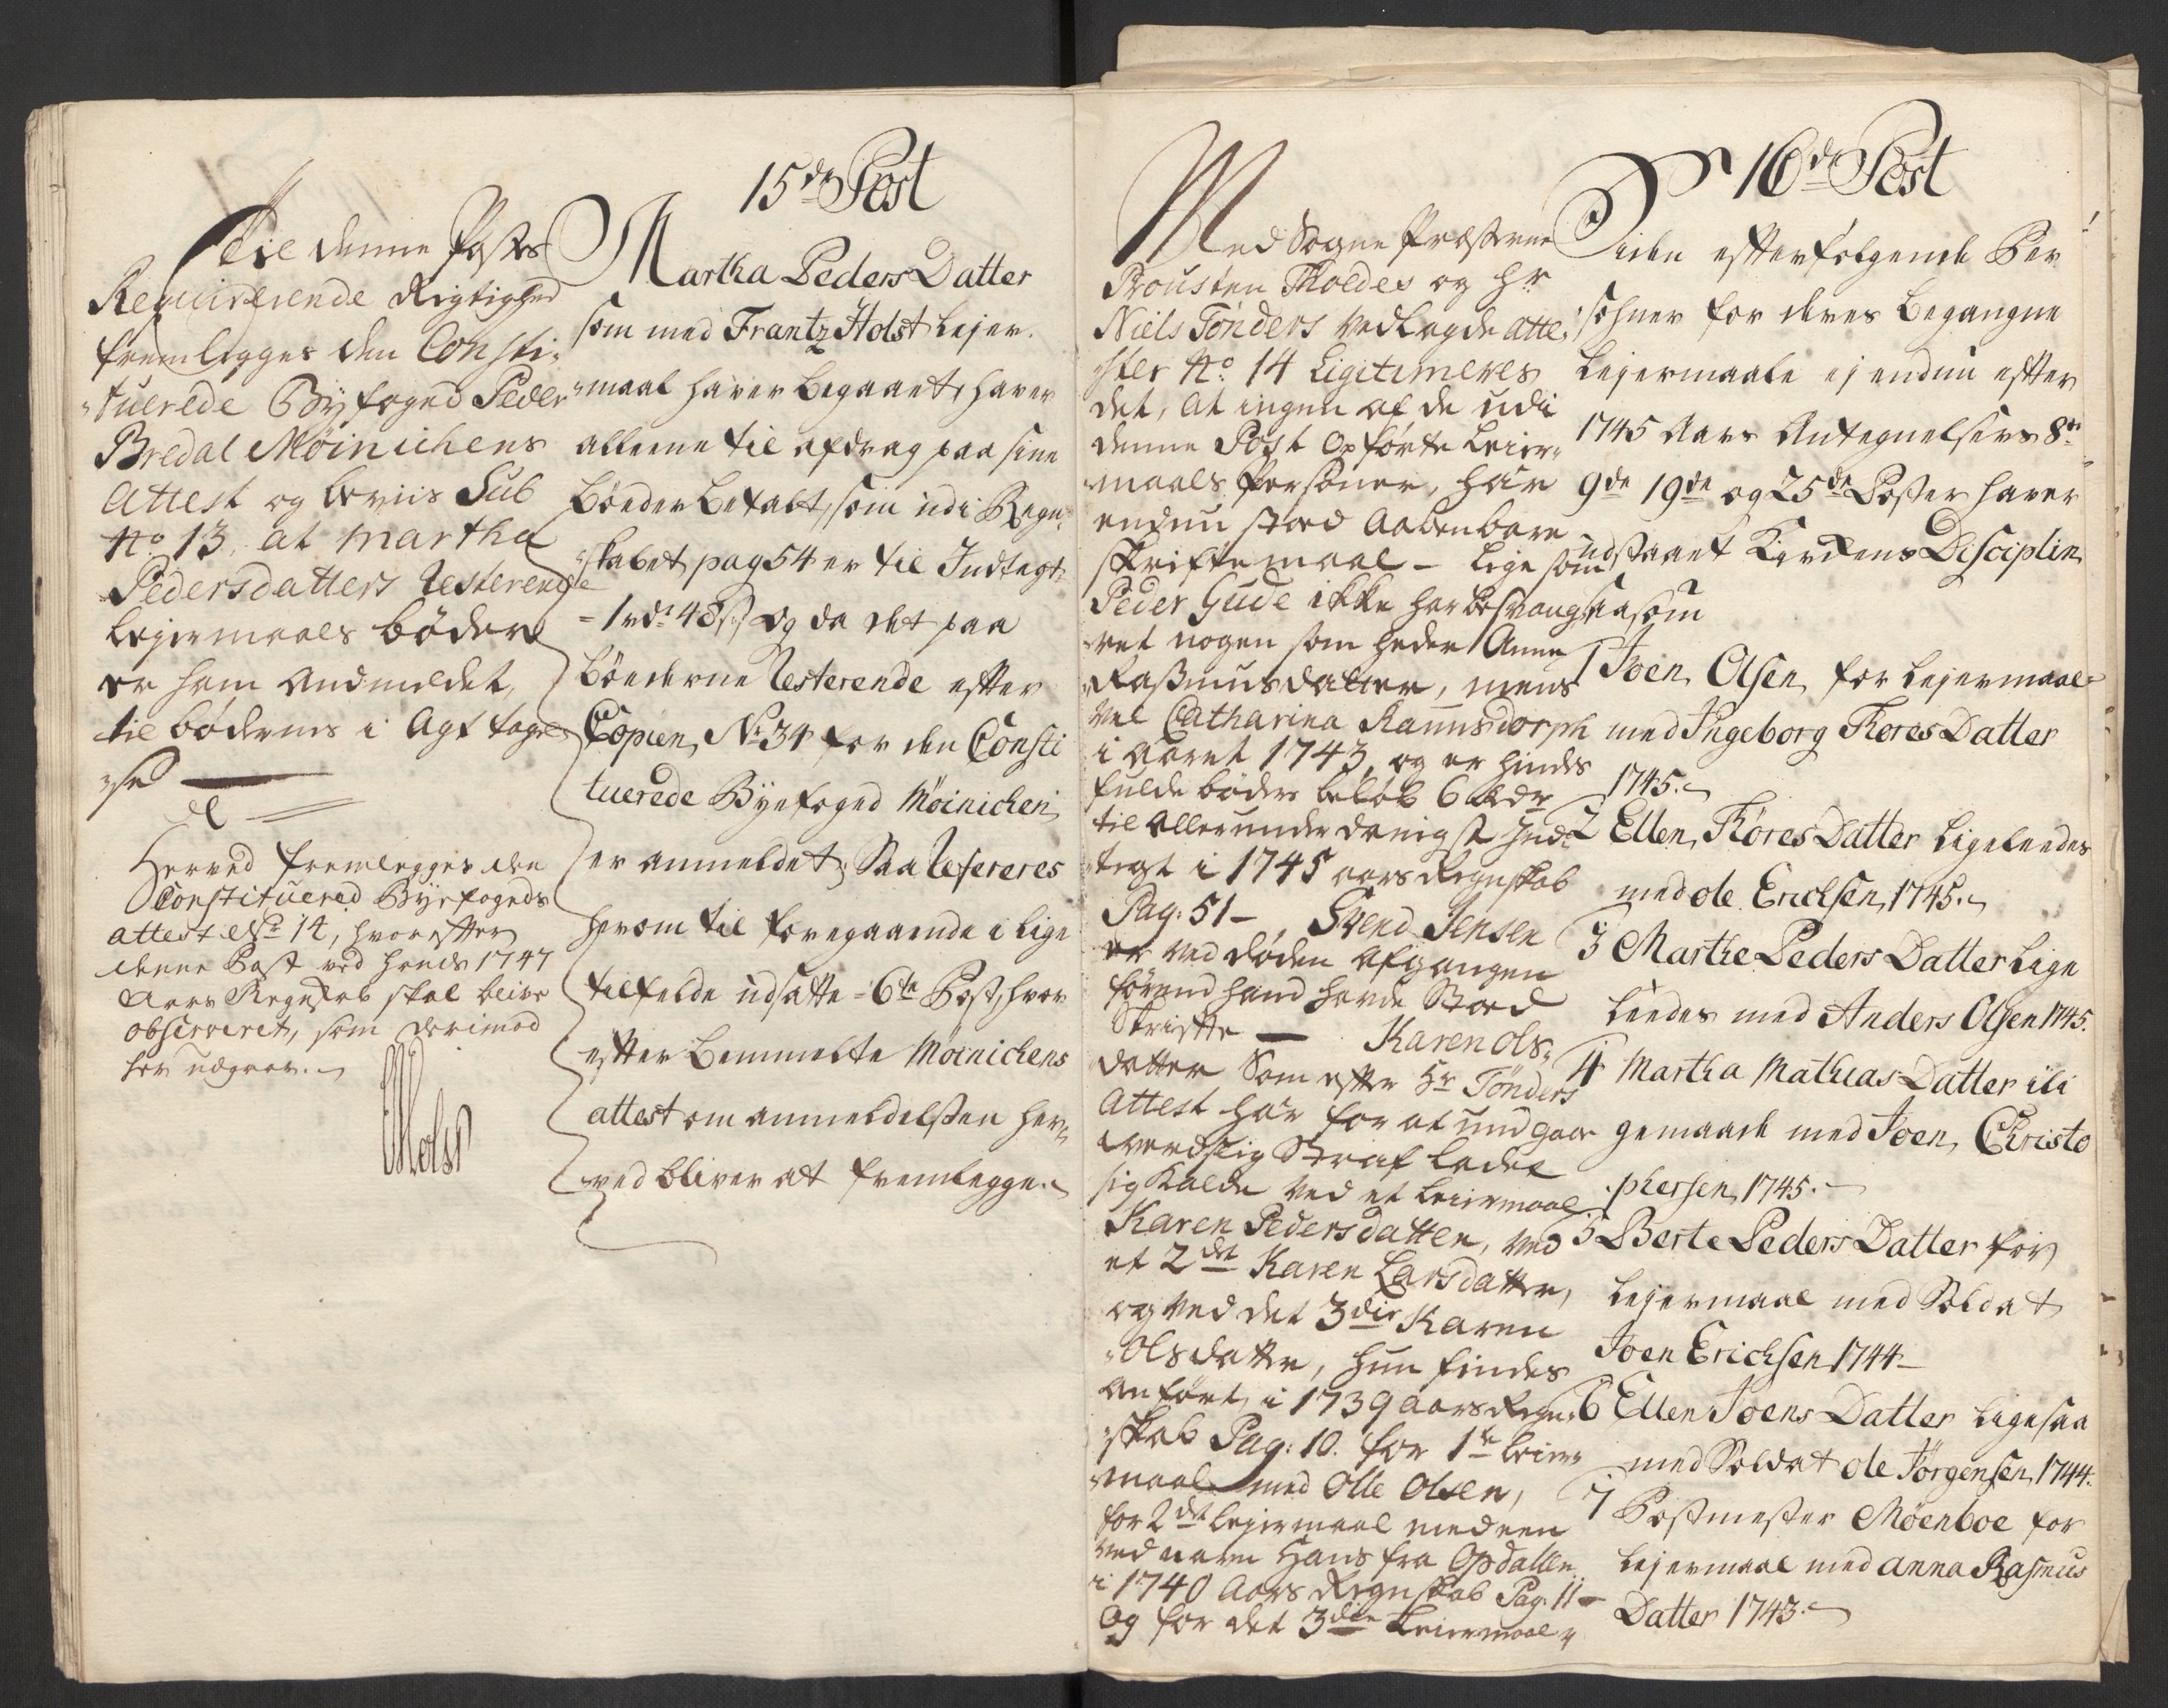 15de Post
Til denne Posts
Requirerende Rigtighed
fremlegges den Consti-
tuerede Byfoged Peder
Bredal Möinichens
Attest og beviis Sub
No 13, at Martha
Pedersdatters resterende
Lejermaals bøder
er ham Anmeldet,
til bødernes i Agt tagel-
se
Herved fremlegges den
Constituered Byefogeds
attest No 14, hvorefter
denne Post ved hends 1747
Aars Regnskab skal blive
observeret, som derimod
her udgaar.
Martha Peders Datter
som med Frantz Holst Lejer-
maal haver begaaet, haver
alleene til afdrag paa sine
bøeder betalt, som udi Regn-
skabet pag 54 er til Indtegt
= 1 rdr 48 s, og da det paa
bøederne resterende efter
Copien No 34 for den Consti
tuerede Byefoged Möinichen
er anmeldet, Saa refereres
herom til foregaaende i lige
tilfelde udsatte = 6te Post, hvor
efter bemmelte Möinichens
attest om anmeldelsen her-
ved bliver at fremlegge.
16de Post
Med Sogne Præsterne
Prousten Tholder og Hr
Niels Tønders vedlagde atte-
ster No 14 Ligitimeres
det, at ingen af de udi
denne Post opførte Leier-
maals Personer, har
endnu stoed Aabenbare
skriftemaal - Lige som
Peder Gude ikke har besvang-
ret nogen som heder Anne
Rasmusdatter, mens
vel Catharina Ramsdorph
i Aaret 1743, og er hindes
fulde bøder beløb 6 rdr
til Allerunderdanigst Ind-
tegt i 1745 aars Regnskab
Pag: 51 - Svend Jensen
er ved døden afgangen
førend hand havde Stoed
Skrifte - Karen Ols-
datter Som efter Hr Tönders
Attest har for at undgaae
verdslig Straf ladet
sig kalde ved et Leiermaal
Karen Pedersdatter, ved
et 2det Karen Larsdatter,
og ved det 3die Karen
Olsdatter, hun findes
anført i 1739 aars Regn-
skab Pag: 10. for 1te Leier-
maal med Olle Olsen,
for 2det Lejermaal med een
ved navn Hans fra Opdallen
i 1740 Aars Regnskab Pag. 11 -
Og for det 3die Leiermaal
Siden efterfølgende Per
sohner for deres begangne
Lejermaale ej endnu efter
1745 Aars Antegnelsers 8de
9de 19de og 25de Poster haver
udstaaet Kirkens Disciplin,
saasom
1 Joen Olsen, for Lejermaal
med Ingeborg Tores Datter
1745.
2 Ellen Tores Datter Ligeleedes
med Ole Erichsen, 1745.
3 Marthe Peders Datter Lige
Leedes med Anders Olsen 1745.
4 Martha Mathias Datter ili
gemaade med Joen Christo
phersen, 1745.
5 Berte Peders Datter for
Lejermaal med Soldat
Joen Erichsen 1744
6 Ellen Joens Datter Ligesaa
med Soldat Ole Jörgensen, 1744.
7 Postmester Möenboe for
Lejermaal med Anna Rasmus
Datter 1743.